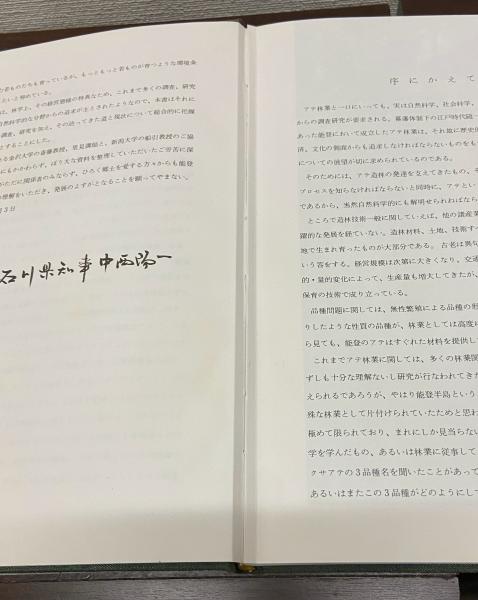 若ものたちも育っているが、もっともっと若ものが育つような環境条
たいと努めている。
は、林学上、その経営態様の特異なため、これまで多くの調査、研究
自然科学的な分野からの追求が主とされたようなので、本書はそれに
調査、研究を加え、その辿ってきた道と現状について総合的に把握
とすることにした。
る金沢大学の斎藤教授、里見講師と、新潟大学の船引教授のご協
にもかかわらず、ぼう大な資料を整理していただいたご労苦に深
がただに関係者のみならず、ひろく郷土を愛する方々からも能登
理解をいただき、発展のよすがとなることを願ってやまない。
月3日
石川県知事 中西陽一
序にかえて
アテ林業と一口にいっても、実は自然科学、社会科学、
からの調査研究が要求される。幕藩体制下の江戸時代
あった能登において成立したアテ林業は、それ故に歴史
済、文化の側面からも追求しなければならないものをも
についての展望が切に求められているのである。
そのためには、アテ造林の発達を支えてきたもの、そ
プロセスを知らなければならないと同時に、アテとい
であるから、当然自然科学的にも解明せられねばならな
ところで造林技術一般に関していえば、他の諸産業
躍的な発展を経ていない。造林材料、土地、技術す
地で生まれ育ったものが大部分である。古老は異句
いう答をする。経営規模は次第に大きくなり、交通
的・量的変化によって、生産量も増大してきたが、
保育の技術で成り立っている。
品種問題に関しては、無性繁殖による品種の形
りしたような性質の品種が、林業としては高度に
ら見ても、能登のアテはすぐれた材料を提供し
これまでアテ林業に関しては、多くの林業関
ずしも十分な理解ないし研究が行なわれてきた
えられるであろうが、やはり能登半島という
殊な林業として片付けられていたためと思わ
極めて限られており、まれにしか見当らない
学を学んだもの、あるいは林業に従事して
クサアテの3品種名を聞いたことがあって
あるいはまたこの3品種がどのようにして